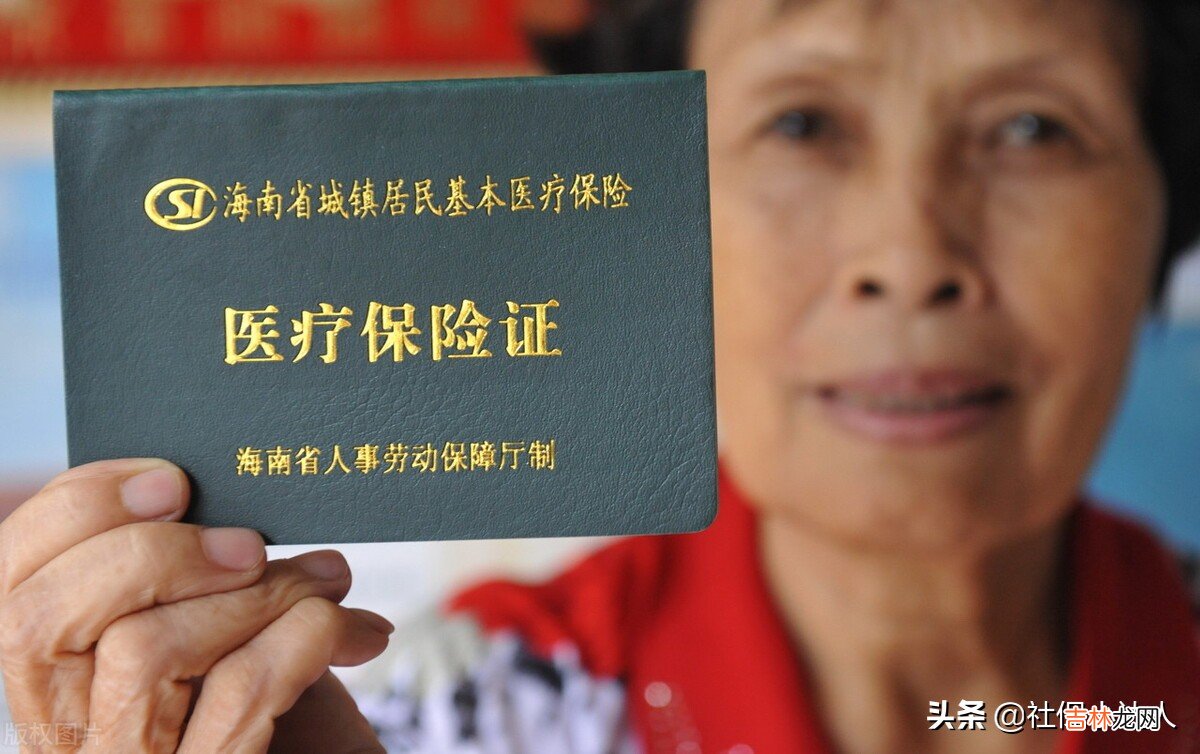 SI 海南省城镇居民基本医疗保险
医疗保险证
海南省人事劳动保障厅制
头条 @社保小达人
吉林龙网
版权图片